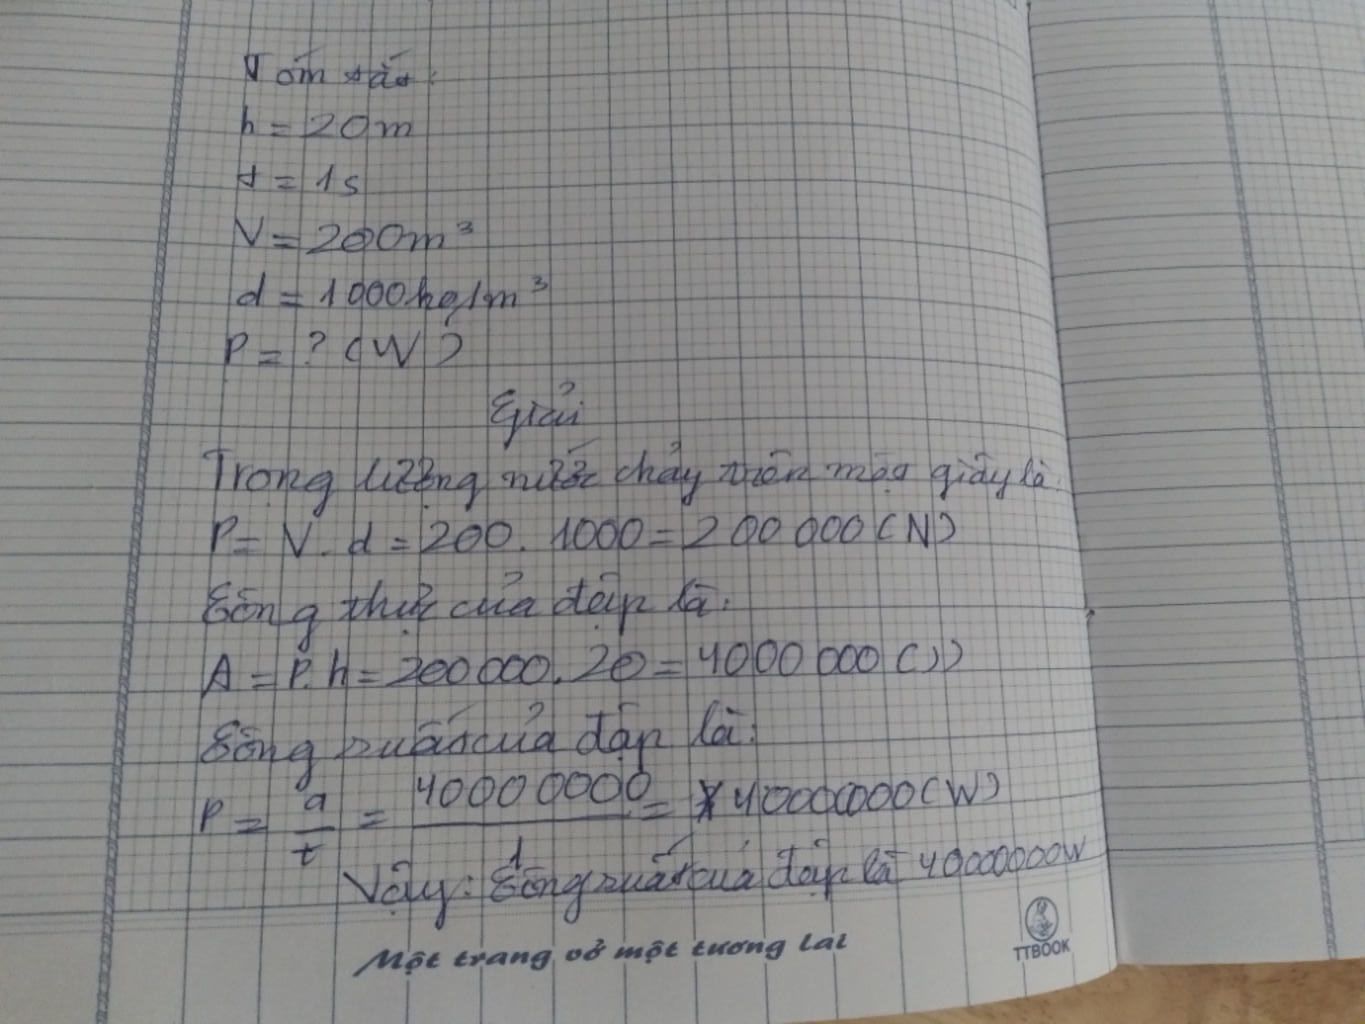 Tóm tắt:
h = 20m
t = 1s
V = 200m³
d = 1000kg/m³
P = ? (W)
Giải
Trọng lượng nước chảy trên một giây là:
P = V. d = 200. 1000 = 200 000 (N)
Công thực của đập là:
A = P. h = 200 000. 20 = 4000 000 (J)
Công suất của đập là:
P = a/t = 40000000/1 = 40000000 (W)
Vậy: Công suất của đập là 40000000W
Một trang vở một tương lai
TTBOOK